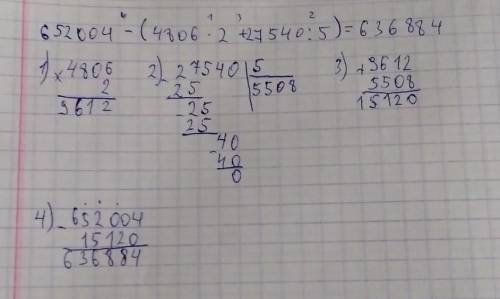 652004 - (4806 · 2 + 27540 : 5) = 636884
1) × 4806
2
9612
2) - 27540 | 5
25 5508
- 25
25
- 40
40
0
3) + 9612
5508
15120
4) - 652004
15120
636884